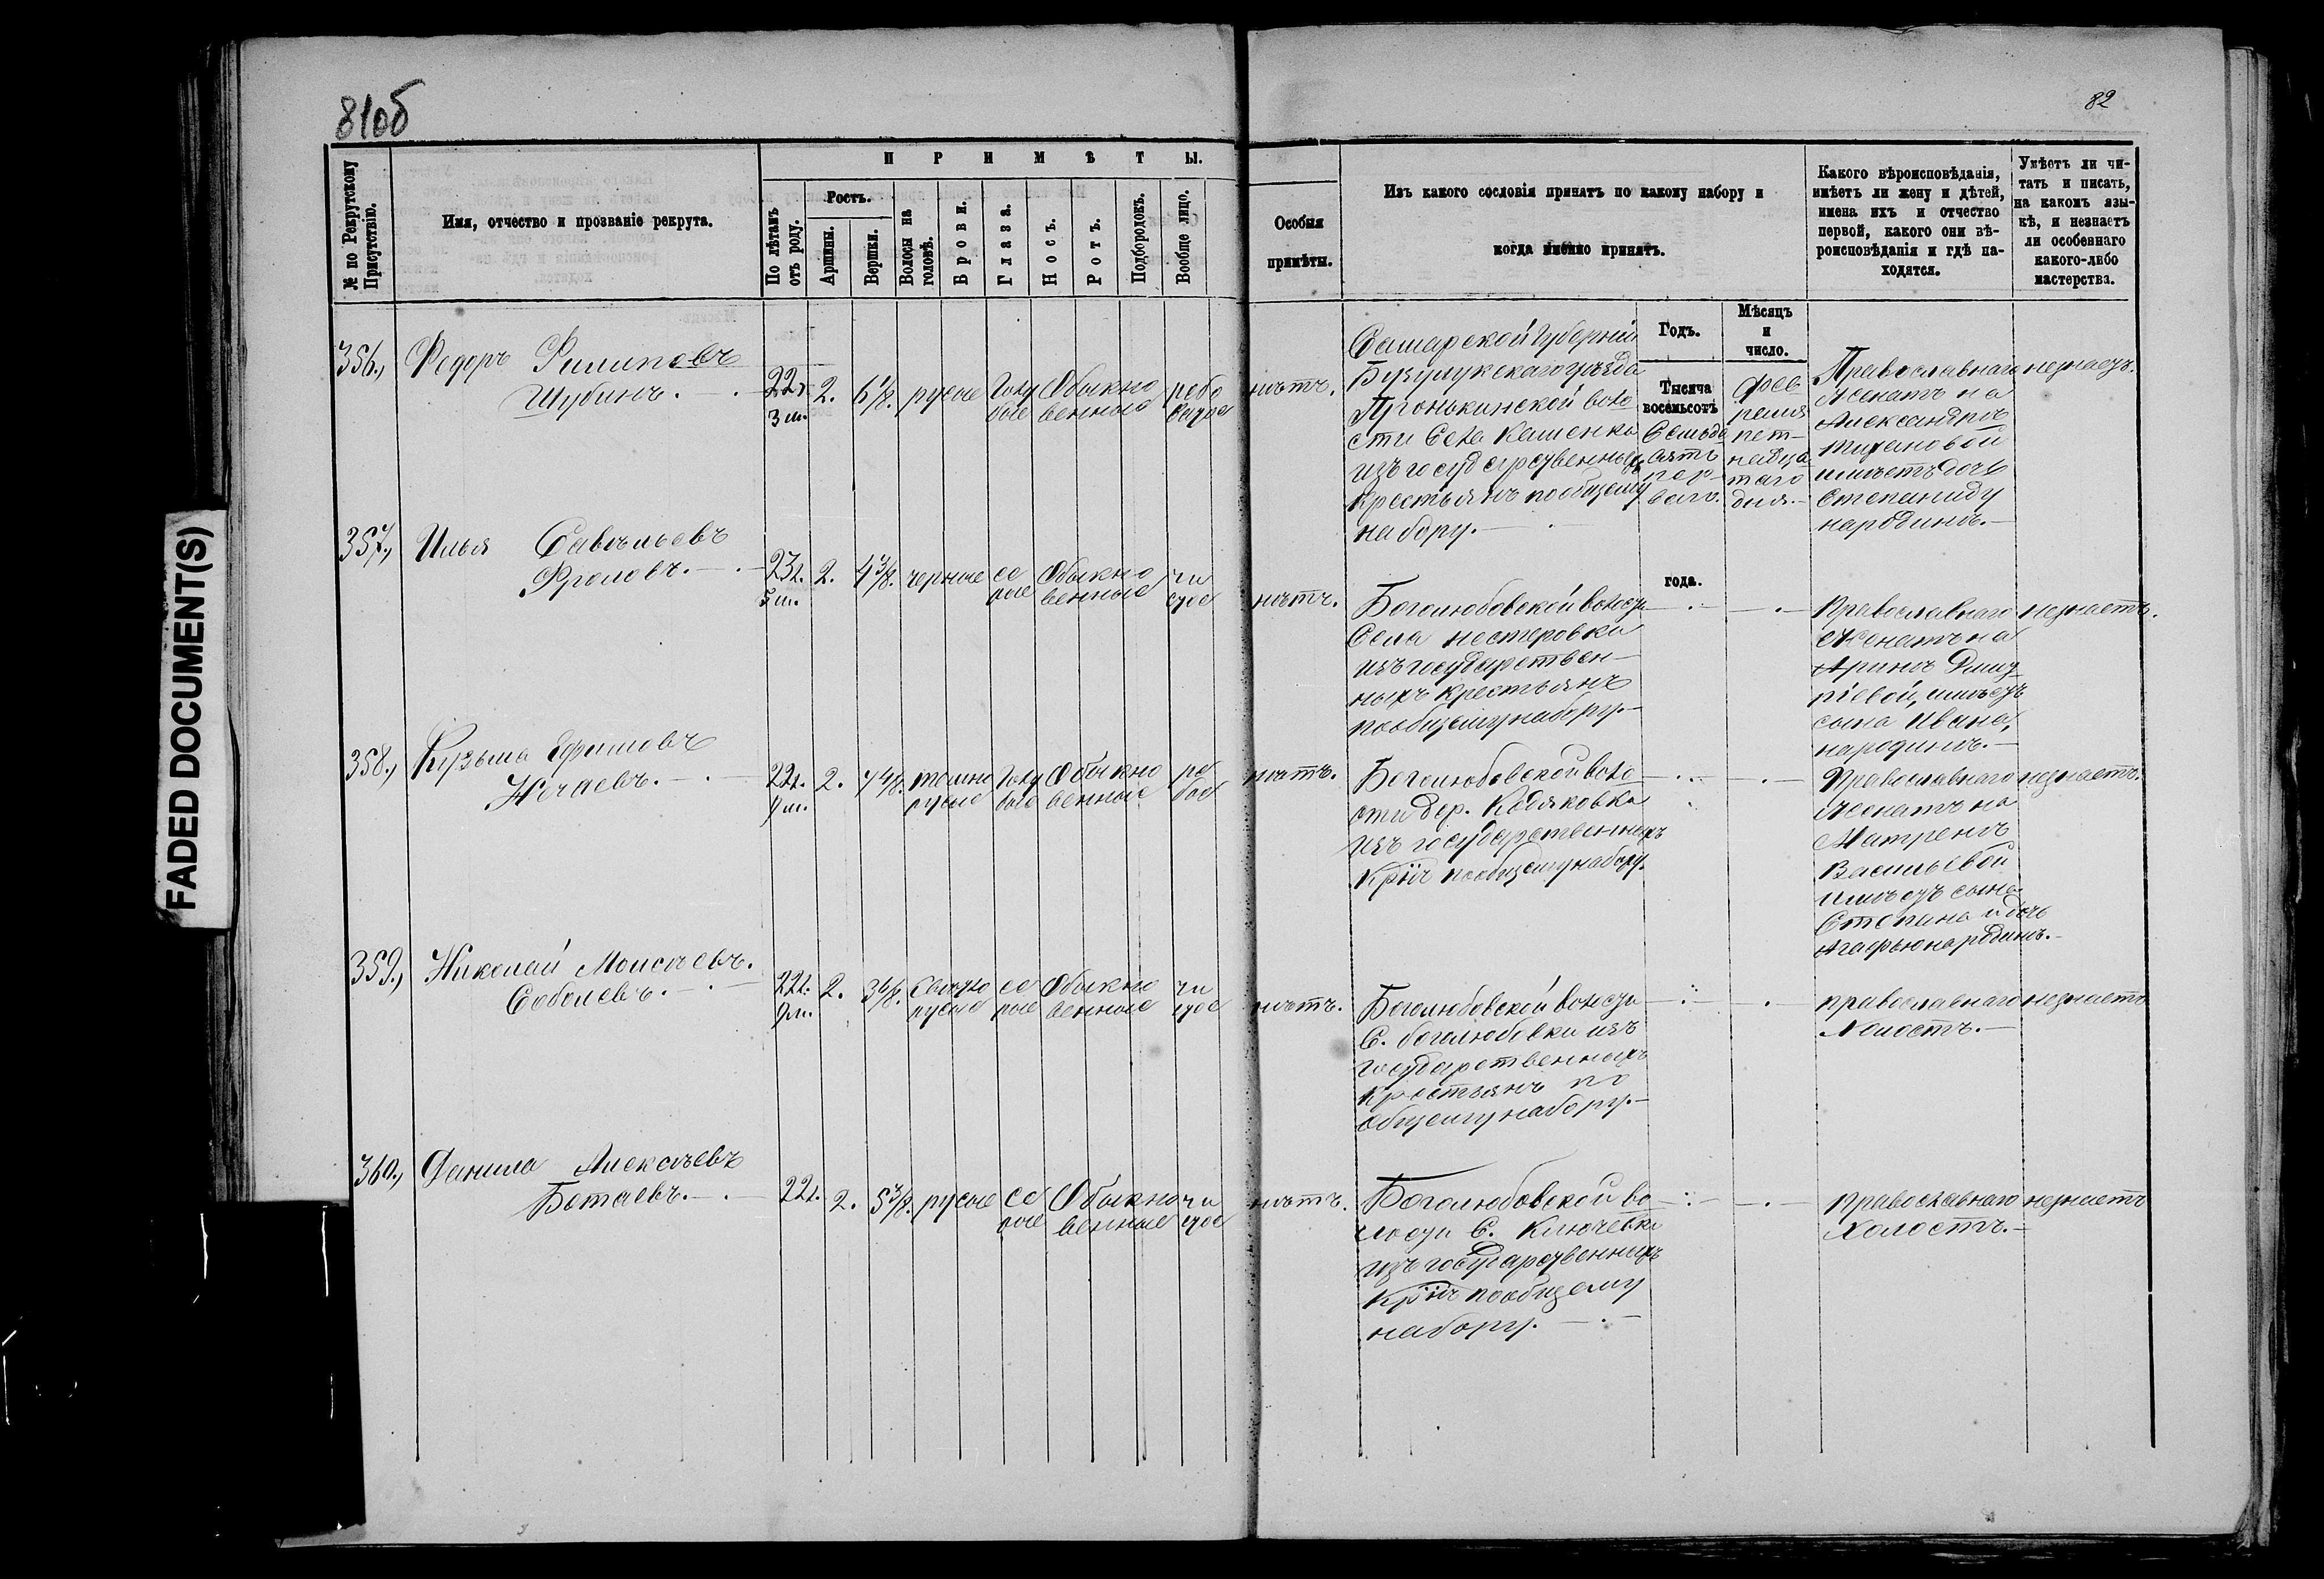 81об
82
FADED DOCUMENT(S)
№ по Рекрутскому Присутствію.
Имя, отчество и прозваніе рекрута.
ПРИМѢТЫ.
По лѣтамъ отъ роду.
Ростъ.
Аршины.
Вершки.
Волосы на головѣ.
Брови.
Глаза.
Носъ.
Ротъ.
Подбородокъ.
Вообще лицо.
Особыя
примѣты.
Изъ какого сословія принятъ по какому набору и
когда именно принятъ.
Годъ.
Мѣсяцъ
и
число.
Какого вѣроисповѣданія,
имѣетъ ли жену и дѣтей,
имена ихъ и отчество
первой, какого они вѣ-
роисповѣданія и гдѣ на-
ходятся.
Умѣетъ ли чи-
тать и писать,
на какомъ язы-
кѣ, и незнаетъ
ли особеннаго
какого-либо
мастерства.
356., Федоръ Филиповъ
Шубинъ.
22 г.
3 м.
2.
6 1/8.
русые
Голу
бые
Обыкно
венные
нѣтъ.
Самарской Губерніи
Бузулукскаго уѣзда
Пронькинской воло
сти Села Каменка
изъ государственныхъ
Крестьянъ пообщему
набору.
Тысяча
восемьсотъ
Семьде
сятъ
пер-
ваго.
года.
Фев
раля
пят-
надца
таго
дня.
Православнаго
женатъ на
Александрѣ
имѣетъ дочь
Степаниду
народинѣ.
незнаетъ.
357., Илья Савельевъ
Фроловъ.
23 г.
5 м.
2.
4 3/8.
черные
се
рые
Обыкно
венные
чи
стое
нѣтъ.
Боголюбовской волости
Села нестеровки
изъ государствен-
ныхъ крестьянъ
пообщему набору.
Православнаго
женатъ на
Аринѣ Дмит
ріевой, имѣетъ
сына Ивана,
народинѣ.
незнаетъ.
358., Кузьма Ефимовъ
Нечаевъ.
22 г.
9 м.
2.
7 4/8.
темно
русые
Голу
бые
Обыкно
венные
ря
бое
нѣтъ.
Боголюбовской воло
сти дер.
изъ государственныхъ
Кр͠нъ пообщему набору.
Православнаго
женатъ на
Матренѣ
Васильевой
имѣетъ сына
Степана и дочь
Агафью народинѣ.
незнаетъ.
359., Николай Моисѣевъ.
Соболевъ.
22 г.
9 м.
2.
3 6/8.
Свѣтло
русые
се
рые
Обыкно
венные
чи
стое
нѣтъ.
Боголюбовской волости
С. боголюбовки изъ
государственныхъ
крестьянъ по
общему набору.
православнаго
Холостъ.
незнаетъ
360., Данила Алексѣевъ
Ботаевъ.
22 г.
2.
5 3/8.
русые
се
рые
Обыкно
венные
чи
стое
нѣтъ.
Боголюбовской во
лости С. Ключевки
изъ государственныхъ
Кр͠нъ пообщему
набору.
православнаго
Холостъ.
незнаетъ